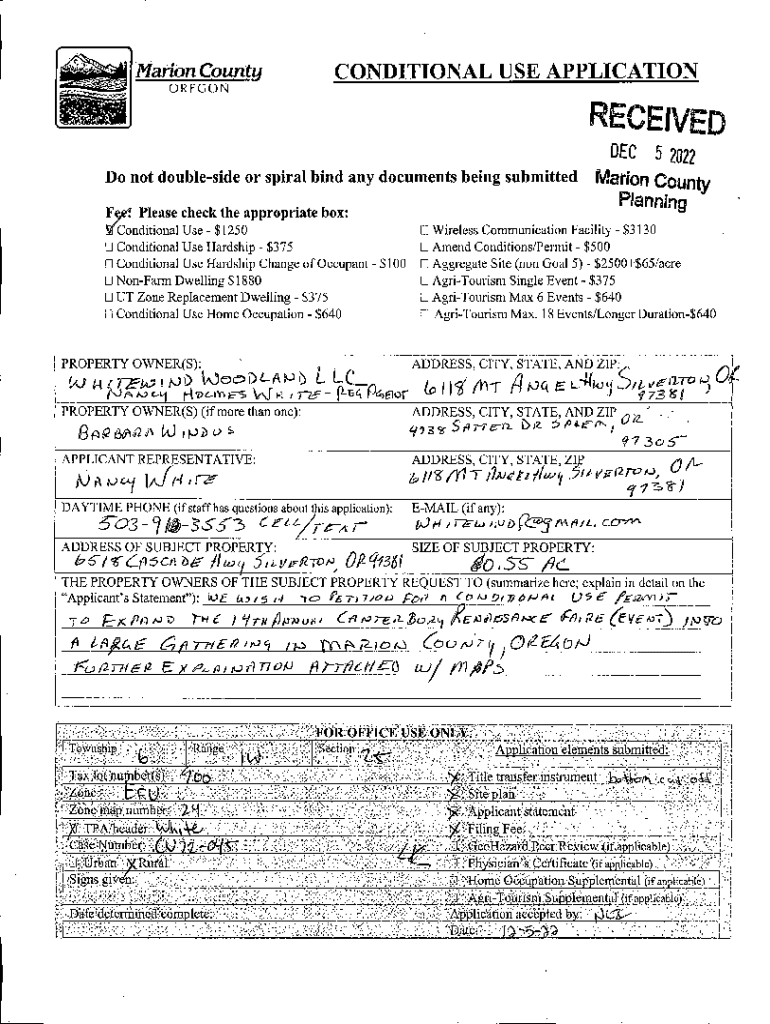 Marion County
OREGON
CONDITIONAL USE APPLICATION
RECEIVED
DEC 5 2022
Marion County
Planning
Do not double-side or spiral bind any documents being submitted
Fee: Please check the appropriate box:
Conditional Use - $1250
Conditional Use Hardship - $375
Conditional Use Hardship Change of Occupant - $100
Non-Farm Dwelling $1880
UT Zone Replacement Dwelling - $375
Conditional Use Home Occupation - $640
Wireless Communication Facility - $3130
Amend Conditions/Permit - $500
Aggregate Site (non Goal 5) - $2500+$65/acre
Agri-Tourism Single Event - $375
Agri-Tourism Max 6 Events - $640
Agri-Tourism Max. 18 Events/Longer Duration-$640
PROPERTY OWNER(S):
WHITEWIND WOODLAND LLC
NANCY HOLMES WHITE - REG AGENT
ADDRESS, CITY, STATE, AND ZIP:
6118 MT ANGEL HWY SILVERTON, OR
97381
PROPERTY OWNER(S) (if more than one):
BARBARA WINDUS
ADDRESS, CITY, STATE, AND ZIP
4738 SATTER DR SALEM, OR
97305
APPLICANT REPRESENTATIVE:
NANCY WHITE
ADDRESS, CITY, STATE, ZIP
6118 MT ANGEL HWY SILVERTON, OR
97381
DAYTIME PHONE (if staff has questions about this application):
CELL/TEXT
E-MAIL (if any):
ADDRESS OF SUBJECT PROPERTY:
6518 CASCADE HWY SILVERTON, OR 97381
SIZE OF SUBJECT PROPERTY:
80.55 AC
THE PROPERTY OWNERS OF THE SUBJECT PROPERTY REQUEST TO (summarize here; explain in detail on the
"Applicant's Statement"): WE WISH TO PETITION FOR A CONDITIONAL USE PERMIT
TO EXPAND THE 14TH ANNUAL CANTERBURY RENAISSANCE FAIRE (EVENT) INTO
A LARGE GATHERING IN MARION COUNTY, OREGON
FURTHER EXPLAINATION ATTACHED W/ MAPS
FOR OFFICE USE ONLY:
Township 6
Range 1W
Section 25
Application elements submitted:
Tax lot number(s) 900
Zone: EFU
Zone map number: 24
X TPA/header White
Case Number: CU 22-045
Urban X Rural
Signs given:
Date determined complete:
X Title transfer instrument bottom cut off
X Site plan
X Applicant statement
X Filing Fee
GeoHazard Peer Review (if applicable)
Physician's Certificate (if applicable)
Home Occupation Supplemental (if applicable)
Agri-Tourism Supplemental (if applicable)
Application accepted by:
Date: 12-5-22